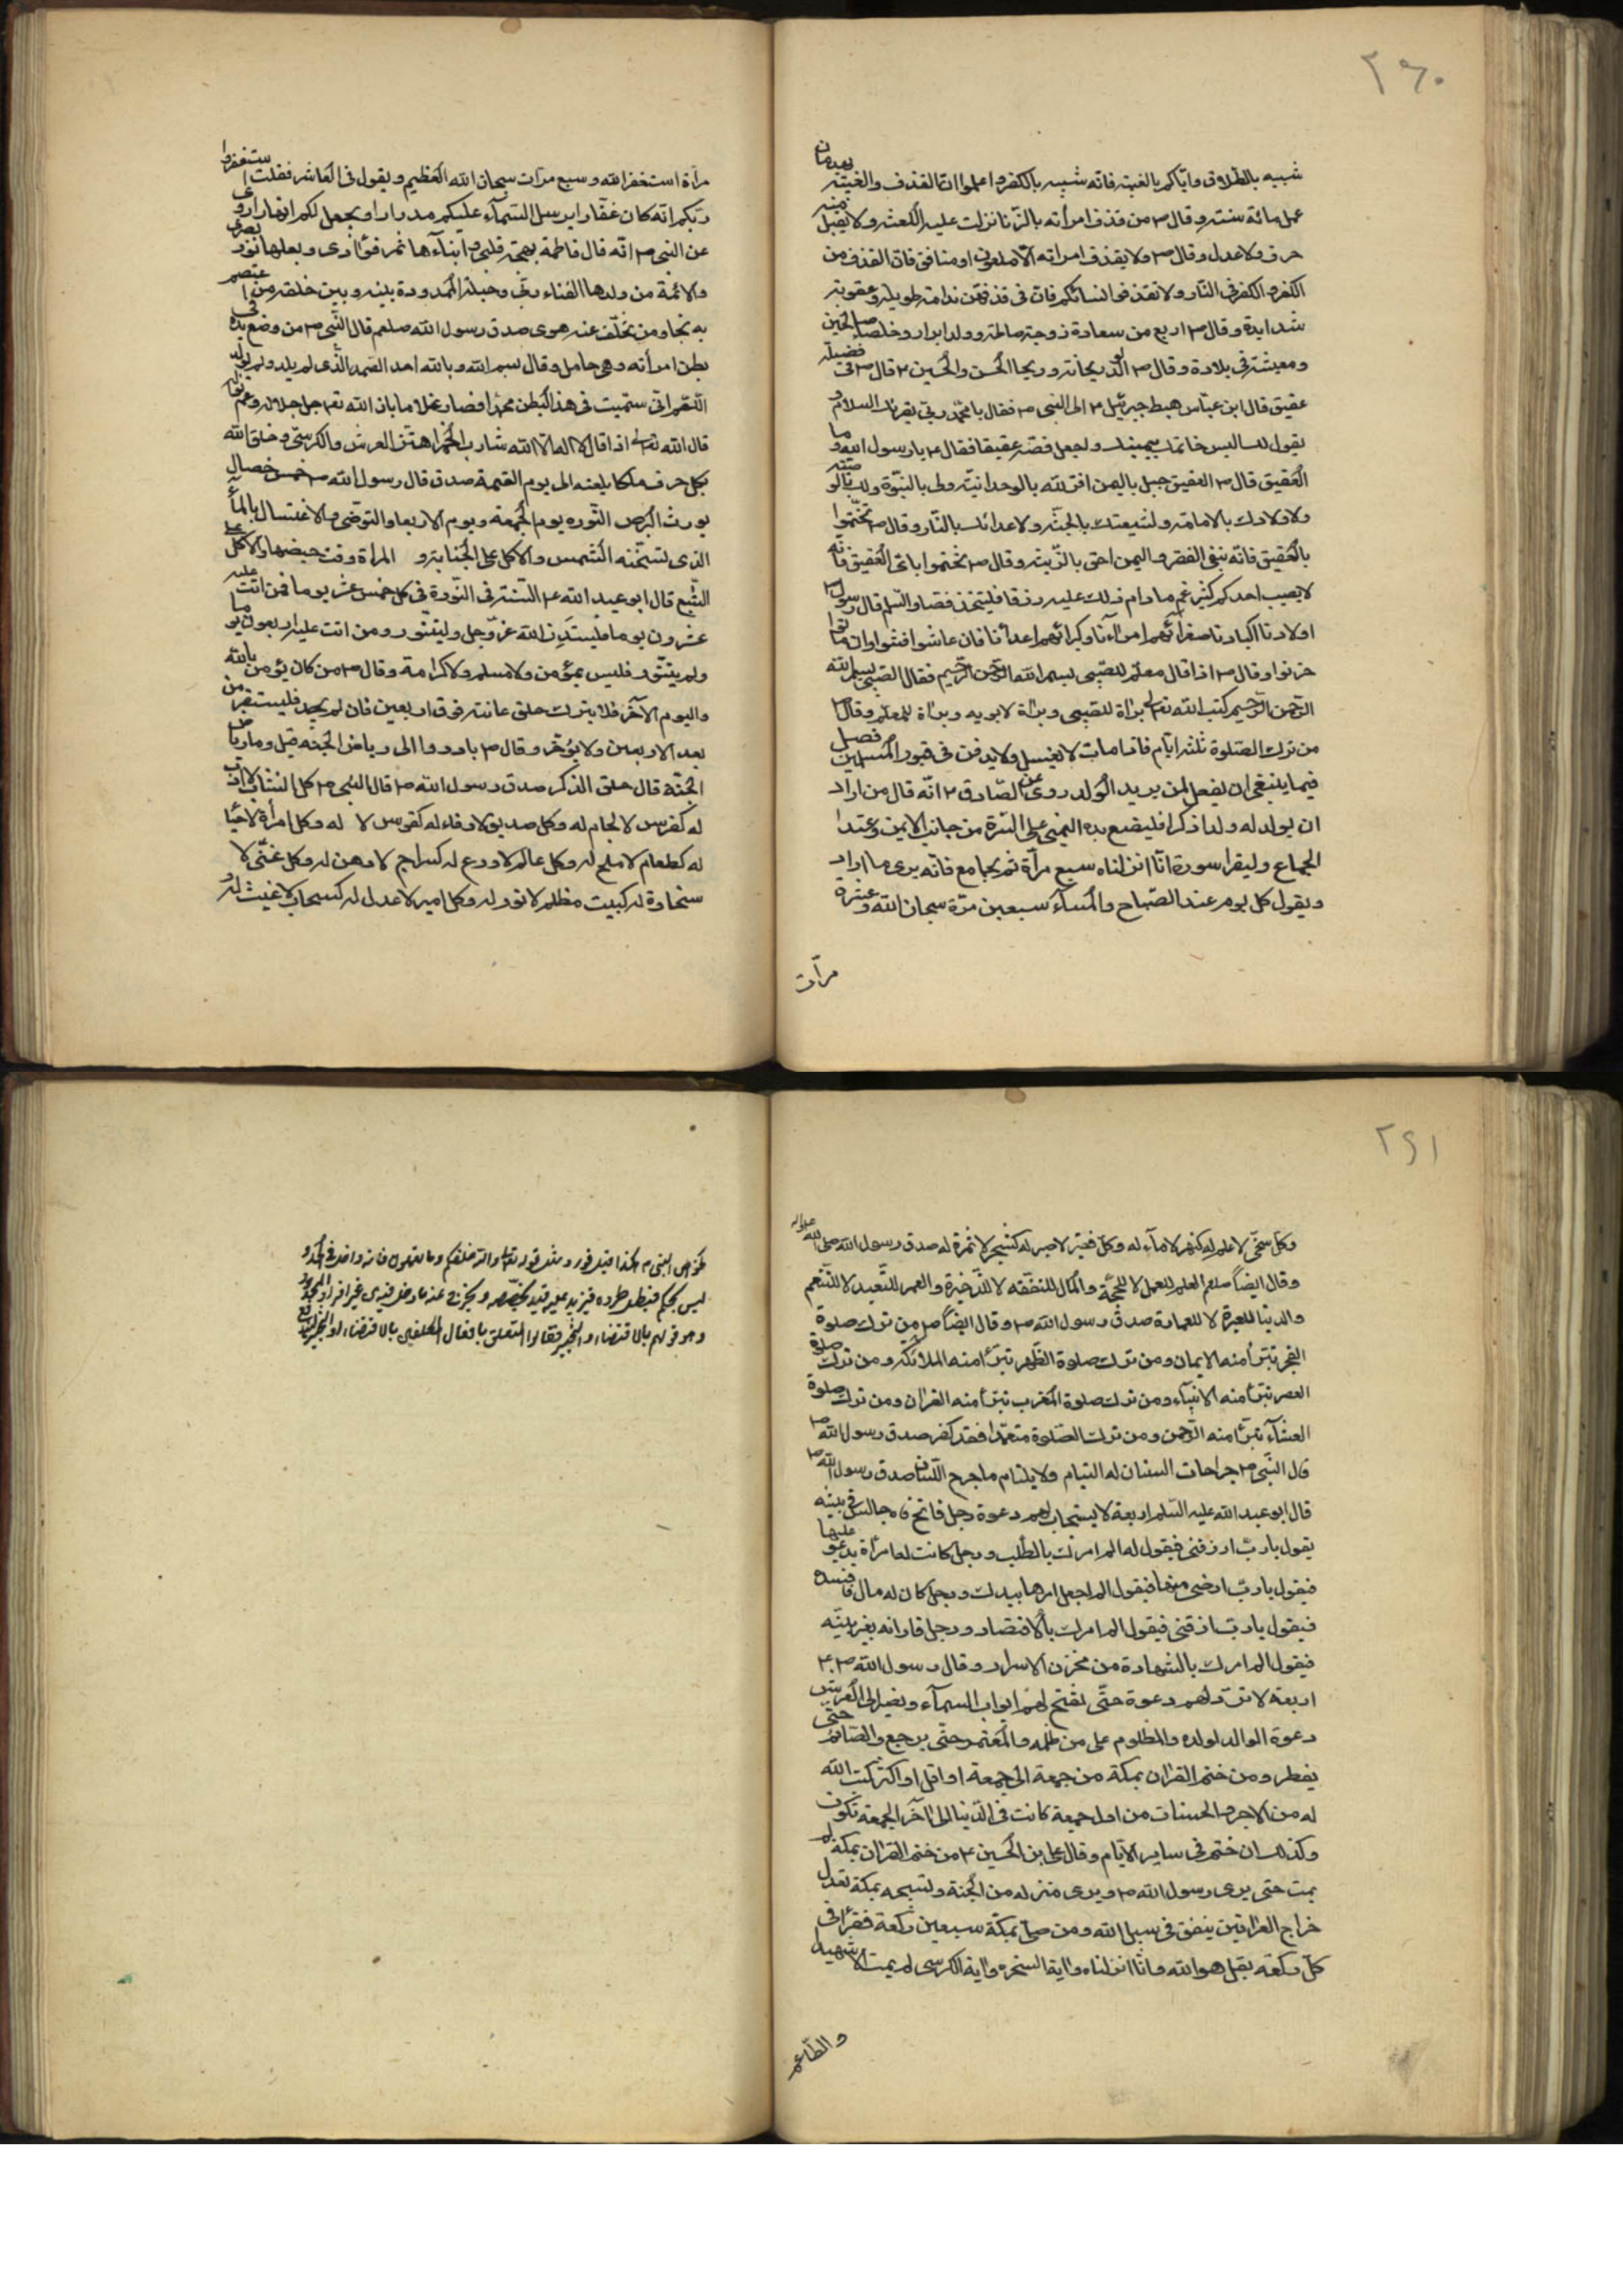 ٢٩٠
شبيه بالطلاق واياكم بالغيبة فانه شبيه بالكفر واعلموا ان القذف والغيبة يهدمان
عمل مائة سنة وقال ص من قذف امرأته بالزنا نزلت عليه اللعنة ولا يقبل منه
صرف ولا عدل وقال ص ولا يقذف امراته الا ملعون او منافق فان القذف من
الكفر والكفر في النار ولا تقذفوا نسائكم فان في قذفهن ندامة طويلة وعقوبة
شديدة وقال ص اربع من سعادة زوجة صالحة وولد ابرار وخلطاء صالحين
ومعيشة في بلاده وقال ص الولد ريحانة وريحا الحسن والحسين ع قال ص في فضيلة
عقيق قال ابن عباس هبط جبرئيل ع الى النبي ص فقال يا محمد ربي يقرئك السلام و
يقول لك البس خاتمك بيمينك واجعل فصه عقيقا فقال ع يا رسول الله وما
العقيق قال ص العقيق جبل باليمن اقر لله بالوحدانية ولى بالنبوة ولك بالوصية
ولاولادك بالامامة ولشيعتك بالجنة ولاعدائك بالنار وقال ص تختموا
بالعقيق فانه ينفي الفقر واليمن احق بالزينة وقال ص تختموا باى العقيق فانه
لا يصيب احدكم كثير غم ما دام ذلك عليه رزقا فليتخذ فصا والسلم قال رسول ص
اولادنا اكبادنا صغرائهم امراءنا وكبرائهم اعدائنا فان عاشوا افتنوا وان ماتوا
حزنوا وقال ص اذا قال معلم للصبي بسم الله الرحمن الرحيم فقال الصبي بسم الله
الرحمن الرحيم كتب الله تعالى براة للصبي وبراة لابويه وبراة للمعلم وقال ص
من ترك الصلوة ثلثة ايام فاذا مات لا يغسل ولا يدفن في قبور المسلمين فصل
فيما ينبغي ان يفعل لمن يريد الولد روى عن الصادق ع انه قال من اراد
ان يولد له ولدا ذكرا فليضع يده اليمنى على السرة من جانب الايمن وعند
الجماع وليقرا سورة انا انزلناه سبع مرآة ثم يجامع فانه يرى ما اراد
ويقول كل يوم عند الصباح والمساء سبعين مرة سبحان الله وعشرة
مرآت
مرآة استغفر الله وسبع مرآت سبحان الله العظيم ويقول في العاشر فقلت استغفروا
ربكم انه كان غفارا يرسل السماء عليكم مدرارا ويجعل لكم انهارا روى
عن النبي ص انه قال فاطمة بهجة قلبي وابناءها ثمر فؤادى وبعلها نور بصرى
والائمة من ولدها امناء ربي وحبله الممدودة بينه وبين خلقه من اعتصم
به نجا ومن تخلف عنه هوى صدق رسول الله صلعم قال النبي ص من وضع يده في
بطن امرأته وهي حامل وقال بسم الله وبالله احد الصمد الذى لم يلد ولم يولد
اللهم انى سميت في هذا البطن محمدا فصار غلاما باذن الله تعالى جل جلاله وعم نواله
قال الله تعالى اذا قال لا اله الا الله شارب الخمر اهتز العرش والكرسى وخلق الله
بكل حرف ملكا يلعنه الى يوم القيمة صدق قال رسول الله ص خمس خصال
يورث البرص النوره يوم الجمعة ويوم الاربعا والتوضى والاغتسال بالمآء
الذى تسخنه الشمس والاكل على الجنابة و المراة وقت حيضها والاكل على
الشبع قال ابو عبد الله ع السنة في النورة في كل خمس عشر يوما فمن اتت عليه
عشرون يوما فليستدن الله عز وجل وليتنور ومن اتت عليه اربعون يوما
ولم يتنور فليس بمؤمن ولا مسلم ولا كرامة وقال ص من كان يؤمن بالله
واليوم الآخر فلا يترك حلق عانته فوق اربعين فان لم يجد فليستقرض
بعد الاربعين ولا يؤخر وقال ص بادروا الى رياض الجنة قيل وما رياض
الجنة قال حلق الذكر صدق رسول الله ص قال النبي ص كل الشاب لا ادب
له كفرس لا لجام له وكل صديق لا وفاء له كقوس لا له وكل امرأة لا حيا
له كطعام لا ملح له وكل عالم لا ورع له كسراج لا دهن له وكل غنى لا
سخاوة له كبيت مظلم لا نور له وكل امير لا عدل له كسحاب لا غيث له و
٢٩١
وكل سخى لا علم له كنهر لا مآء له وكل فقير لا صبر له كشجر لا ثمرة له صدق رسول الله صلى الله عليه واله
وقال ايضا صلعم العلم للعمل لا للحجة والمال للنفقة لا للذخيرة والعمر للتعبد لا للتنعم
والدنيا للعبرة لا للعمارة صدق رسول الله ص وقال ايضا ص من ترك صلوة
الفجر تبرأ منه الايمان ومن ترك صلوة الظهر تبرأ منه الملائكة ومن ترك صلوة
العصر تبرأ منه الانبياء ومن ترك صلوة المغرب تبرأ منه القران ومن ترك صلوة
العشآء تبرأ منه الرحمن ومن ترك الصلوة متعمدا فقد كفر صدق رسول الله ص
قال النبي ص جراحات السنان له التيام ولا يلتام ما جرح اللسان صدق رسول الله ص
قال ابو عبد الله عليه السلم اربعة لا يستجاب لهم دعوة رجل فاتح فاه جالس في بيته
يقول يا رب ارزقنى فيقول له الم امرك بالطلب ورجل كانت له امرأة يدعو عليها
فيقول يا رب ارحنى منها فيقول الم اجعل امرها بيدك ورجل كان له مال فافسده
فيقول يا رب ارزقنى فيقول الم امرك بالاقتصاد ورجل فادانه بغير بينه
فيقول الم امرك بالشهادة من مخزن الاسرار وقال رسول الله ص
اربعة لا ترد لهم دعوة حتى تفتح لهم ابواب السمآء ويصير الى العرش
دعوة الوالد لولده والمظلوم على من ظلمه والمعتمر حتى يرجع والصائم حتى
يفطر ومن ختم القران بمكة من جمعة الى جمعة او اقل او اكثر كتب الله
له من الاجر والحسنات من اول جمعة كانت في الدنيا الى آخر الجمعة تكون
وكذلك ان ختم في ساير الايام وقال على ابن الحسين ع من ختم القران بمكة لم
يمت حتى يرى رسول الله ص ويرى منزله من الجنة وتسبيحه بمكة تعدل
خراج العراقين ينفق في سبيل الله ومن صلى بمكة سبعين ركعة فقرأ في
كل ركعة بقل هو الله وانا انزلناه واية السخره واية الكرسى لم يمت الا شهيد
والطاعم